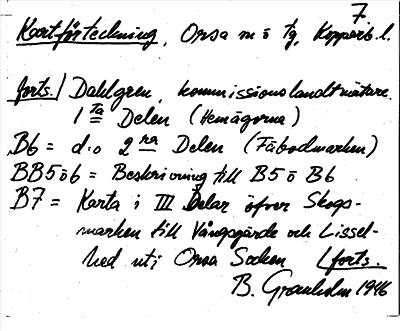 7.
Kartförteckning, Orsa m o tg, Kopparb. l.
forts./ Dahlgren, kommissionslandtmätare.
1 ta Delen (Hemägorna)
B6 = d:o 2 ra Delen (Fäbodmarken)
BB5o6 = Beskrivning till B5 o B6
B7 = Karta i III Delar öfver Skogs-
marken till Vångsgärde och Lissel-
hed uti Orsa Socken /forts.
B. Granholm 1946